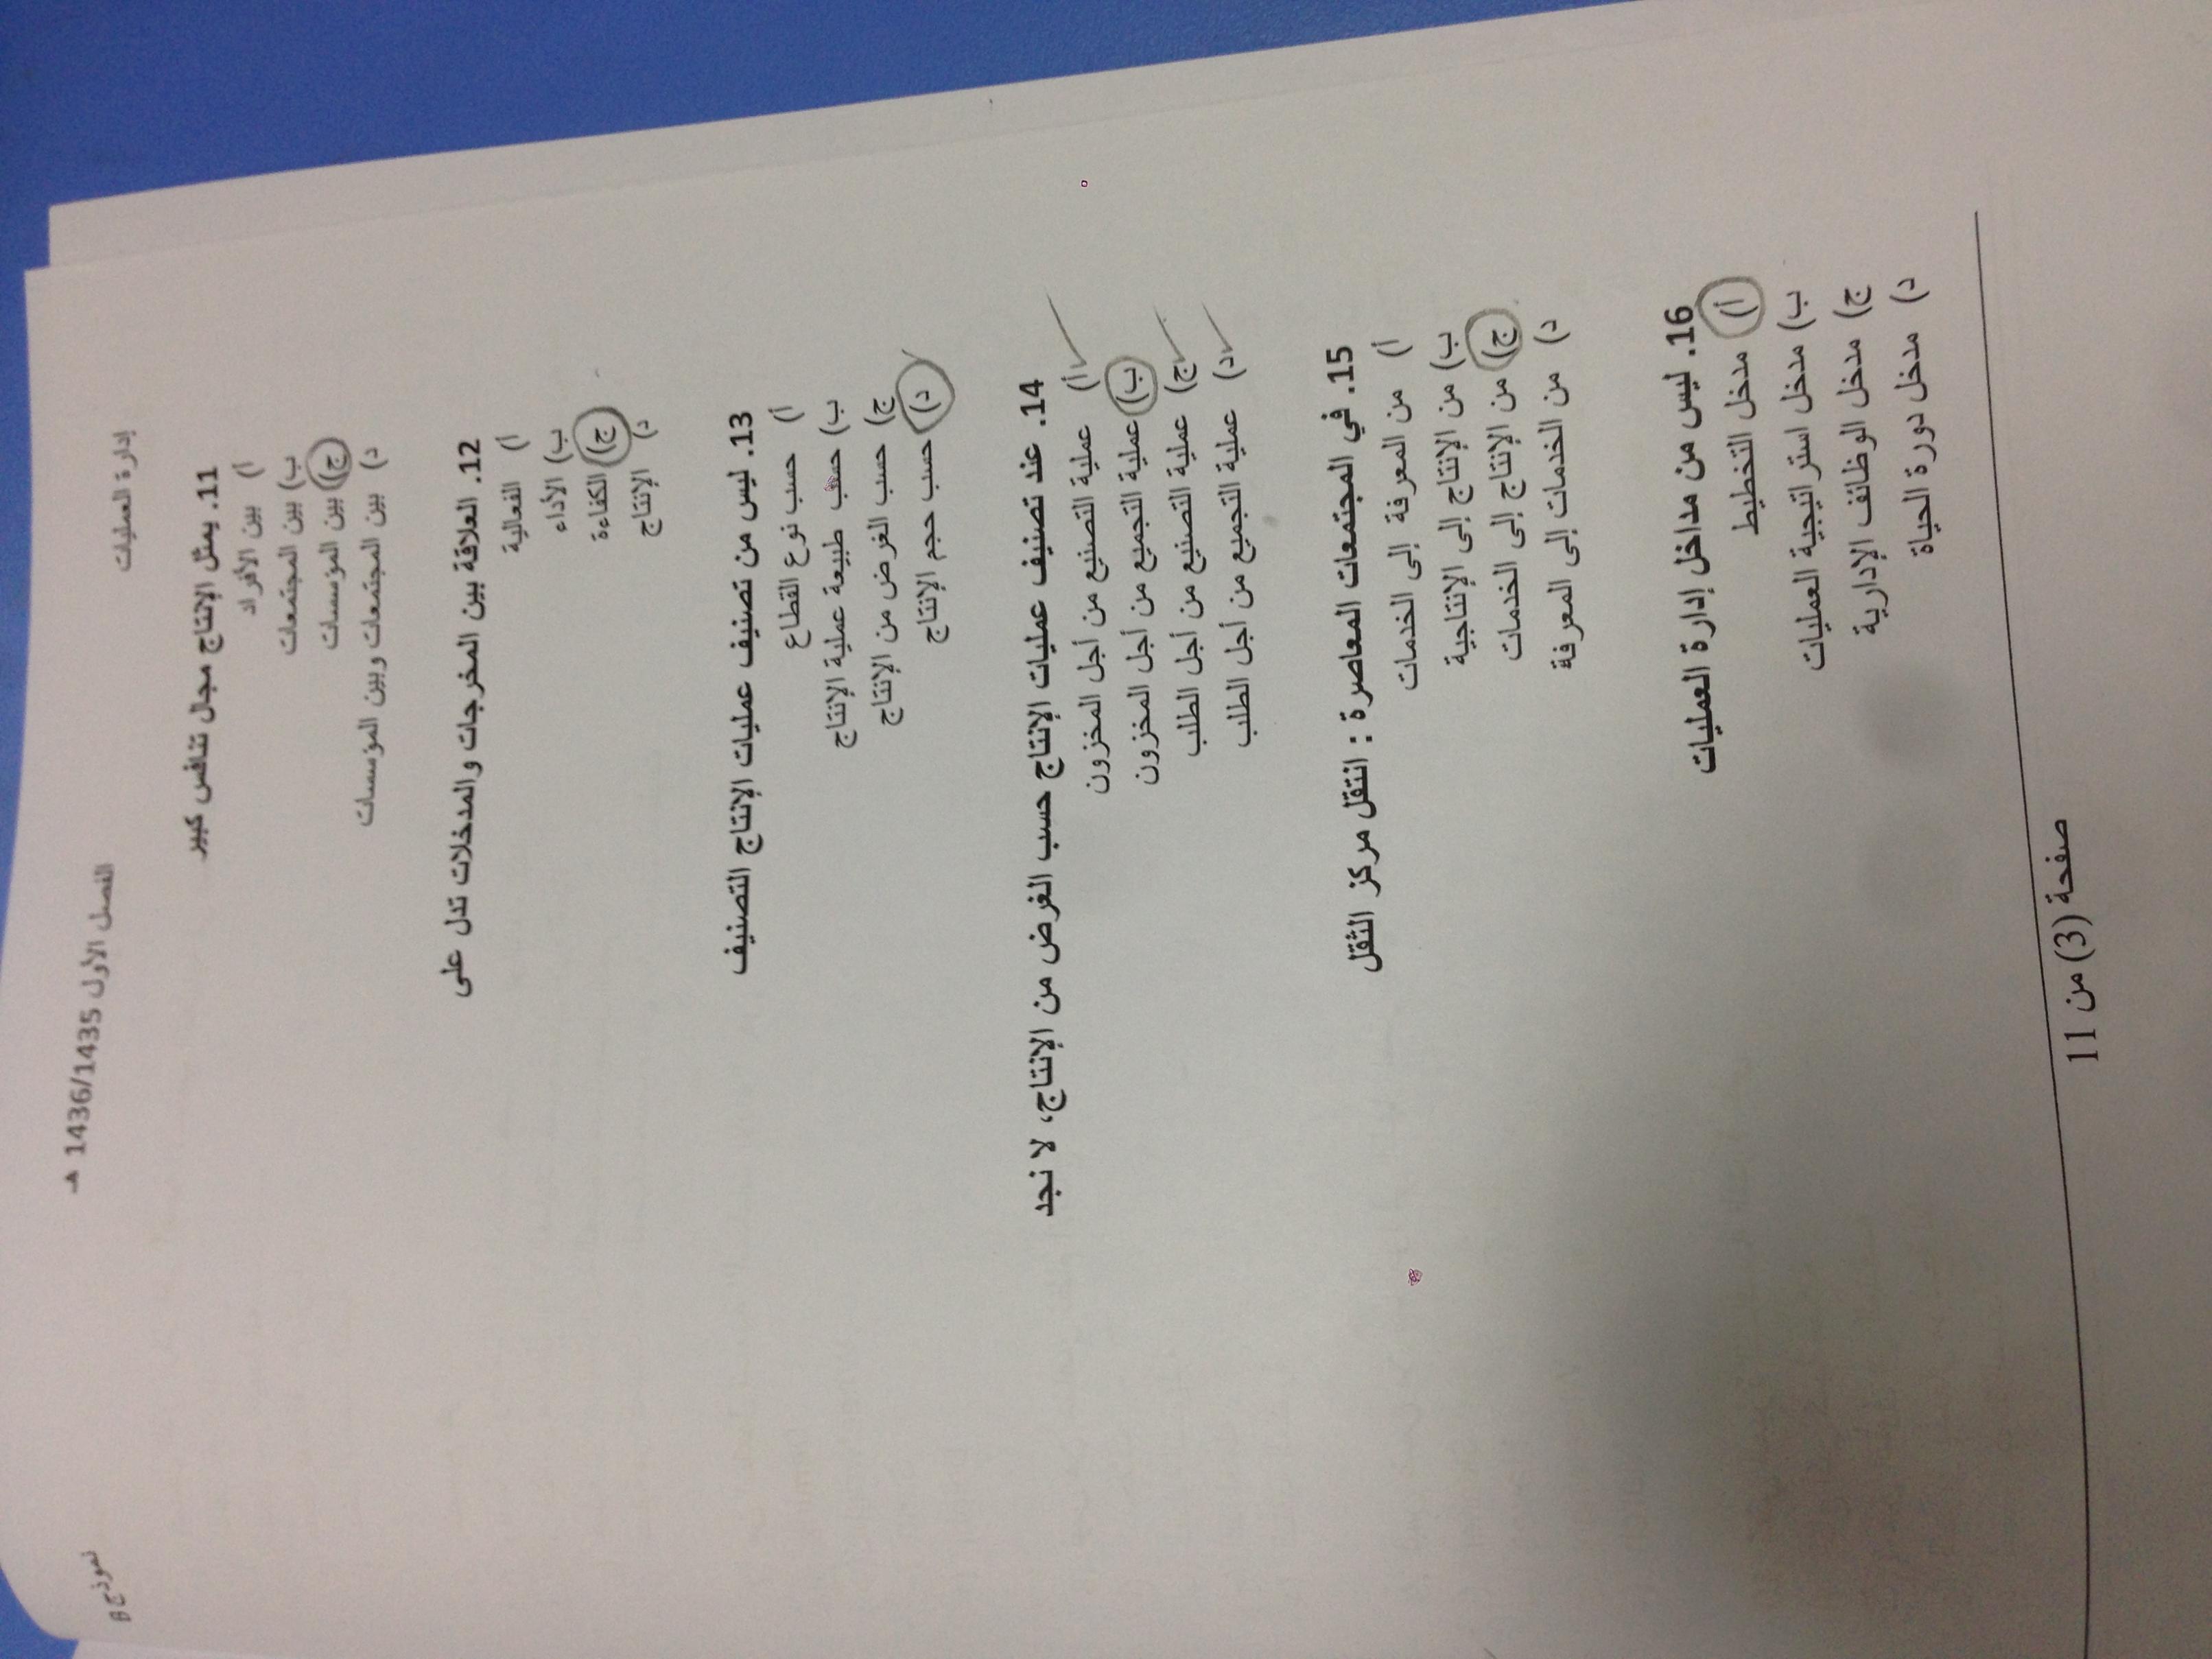 إدارة العمليات الفصل الأول 1436/1435 هـ نموذج B
11. يمثل الإنتاج مجال تنافس كبير
أ) بين الأفراد
ب) بين المجتمعات
ج) بين المؤسسات
د) بين المجتمعات وبين المؤسسات
12. العلاقة بين المخرجات والمدخلات تدل على
أ) الفعالية
ب) الأداء
ج) الكفاءة
د) الإنتاج
13. ليس من تصنيف عمليات الإنتاج التصنيف
أ) حسب نوع القطاع
ب) حسب طبيعة عملية الإنتاج
ج) حسب الغرض من الإنتاج
د) حسب حجم الإنتاج
14. عند تصنيف عمليات الإنتاج حسب الغرض من الإنتاج، لا نجد
أ) عملية التصنيع من أجل المخزون
ب) عملية التجميع من أجل المخزون
ج) عملية التصنيع من أجل الطلب
د) عملية التجميع من أجل الطلب
15. في المجتمعات المعاصرة : انتقل مركز الثقل
أ) من المعرفة إلى الخدمات
ب) من الإنتاج إلى الإنتاجية
ج) من الإنتاج إلى الخدمات
د) من الخدمات إلى المعرفة
16. ليس من مداخل إدارة العمليات
أ) مدخل التخطيط
ب) مدخل استراتيجية العمليات
ج) مدخل الوظائف الإدارية
د) مدخل دورة الحياة
صفحة (3) من 11